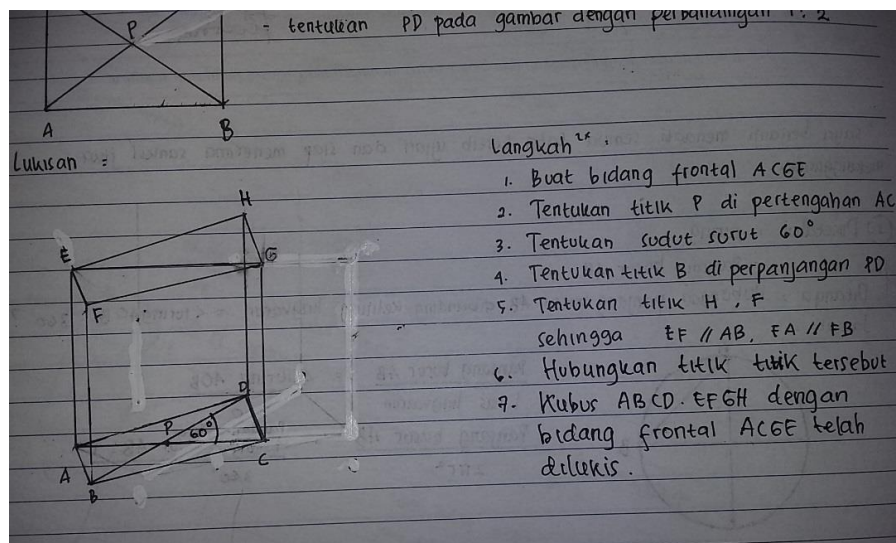 - tentukan PD pada gambar dengan perbandingan 1:2
P
A
B
Lukisan :
Langkah 2x :
1. Buat bidang frontal ACGE
2. Tentukan titik P di pertengahan AC
3. Tentukan sudut surut 60°
4. Tentukan titik B di perpanjangan PD
5. Tentukan titik H, F
sehingga EF // AB, EA // FB
6. Hubungkan titik titik tersebut
7. Kubus ABCD.EFGH dengan
bidang frontal ACGE telah
dilukis.
H
E
G
F
D
P
60°
A
C
B